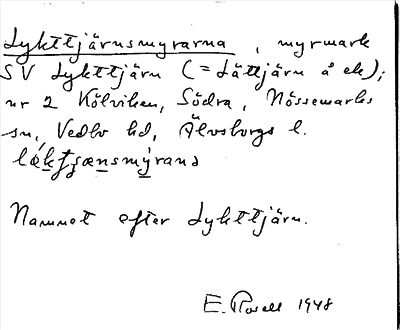 Lykttjärnsmyrarna, myrmark
SV Lykttjärn (= Lättjärn å ek);
nr 2 Kölviken, Södra, Nössemarks
sn, Vedbo hd, Älvsborgs l.
Namnet efter Lykttjärn.
E. Rosell 1948